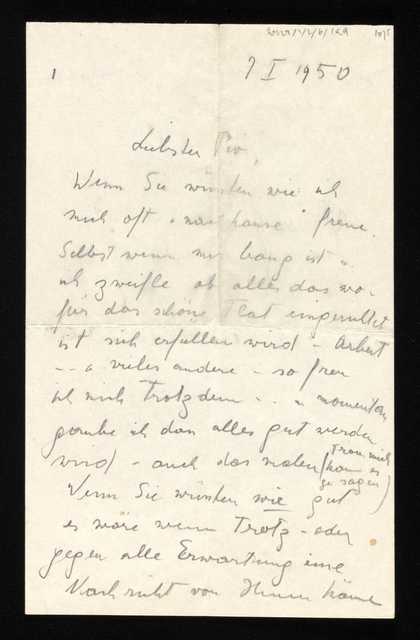 1
7 I 1950
Liebster
Wenn Sie wüssten wie ich
mich oft "nach hause" freue.
Selbst wenn mir bang ist u.
ich zweifle ob alles das wo-
für das schöne eingerichtet
ist sich erfüllen wird - Arbeit
-- u vieles andere - so freu
ich mich trotzdem . . u momentan
glaube ich dan alles gut werden
wird - auch das malen (kaum es
zu sagen)
Wenn Sie wüssten wie gut
es wäre wenn Trotz - oder
gegen alle Erwartung eine
Nachricht von Ihnen käme